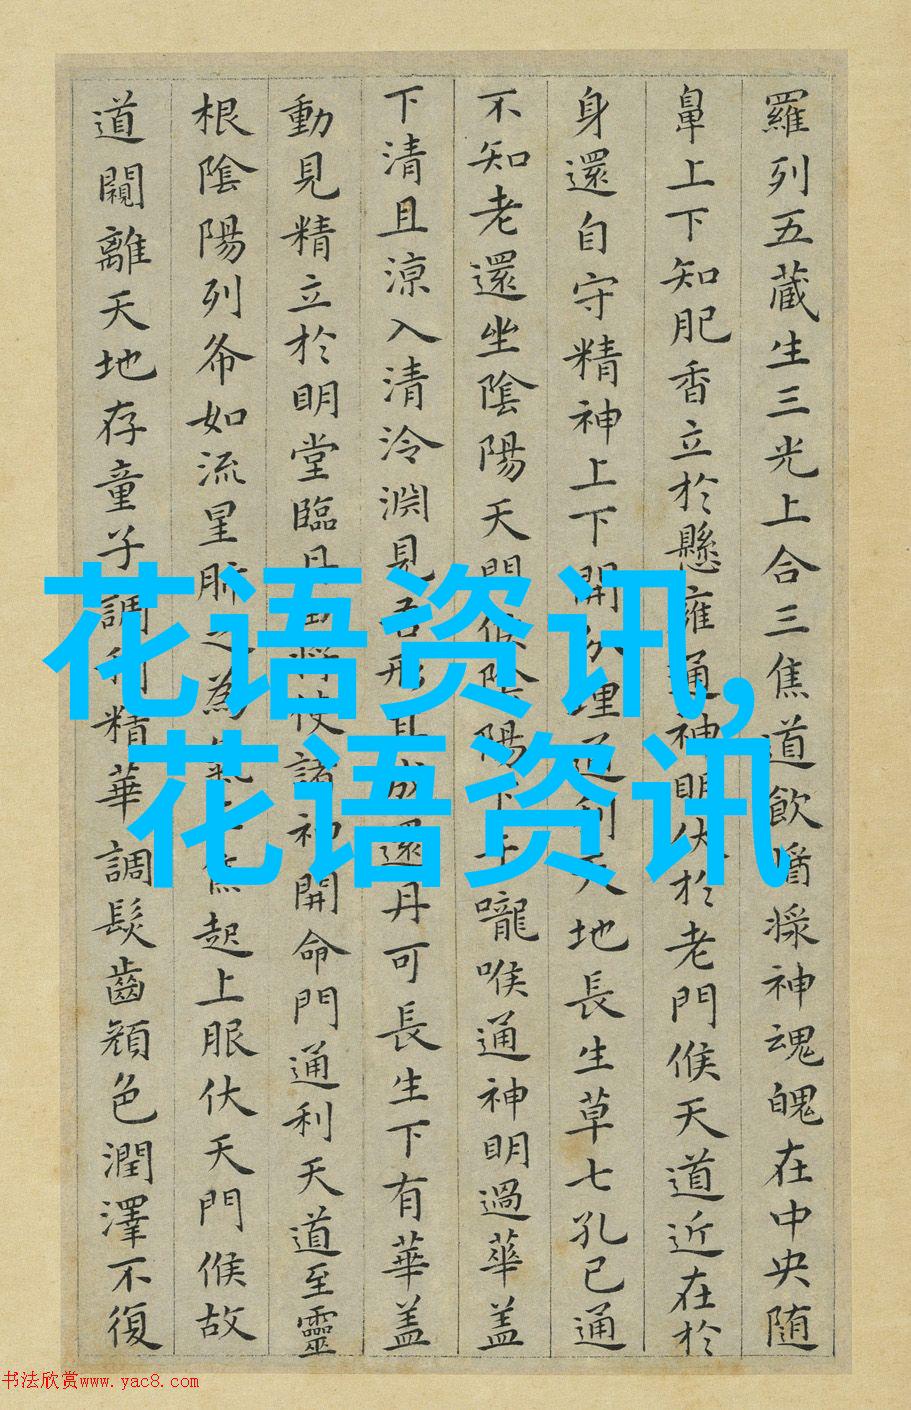 羅列五藏生三光上合三焦道飲醬漿神魂魄在中央随
鼻上下知肥香立於懸雍通神明伏於老門候天道近在於
身還自守精神上下開分理通利天地長生草七孔已通
不知老還坐陰陽天門候陰陽下于嚨喉通神明過華盖
下清且涼入清泠淵見吾形其成還丹可長生下有華盖
動見精立於明堂臨丹田將使諸初開命門通利天道至靈
根陰陽列布如流星肺之為氣三焦起上服伏天門候故
道闚離天地存童子調利精華調髮齒顏色潤澤不復
花语资讯,
花语资讯
书法欣赏www.yac8.com